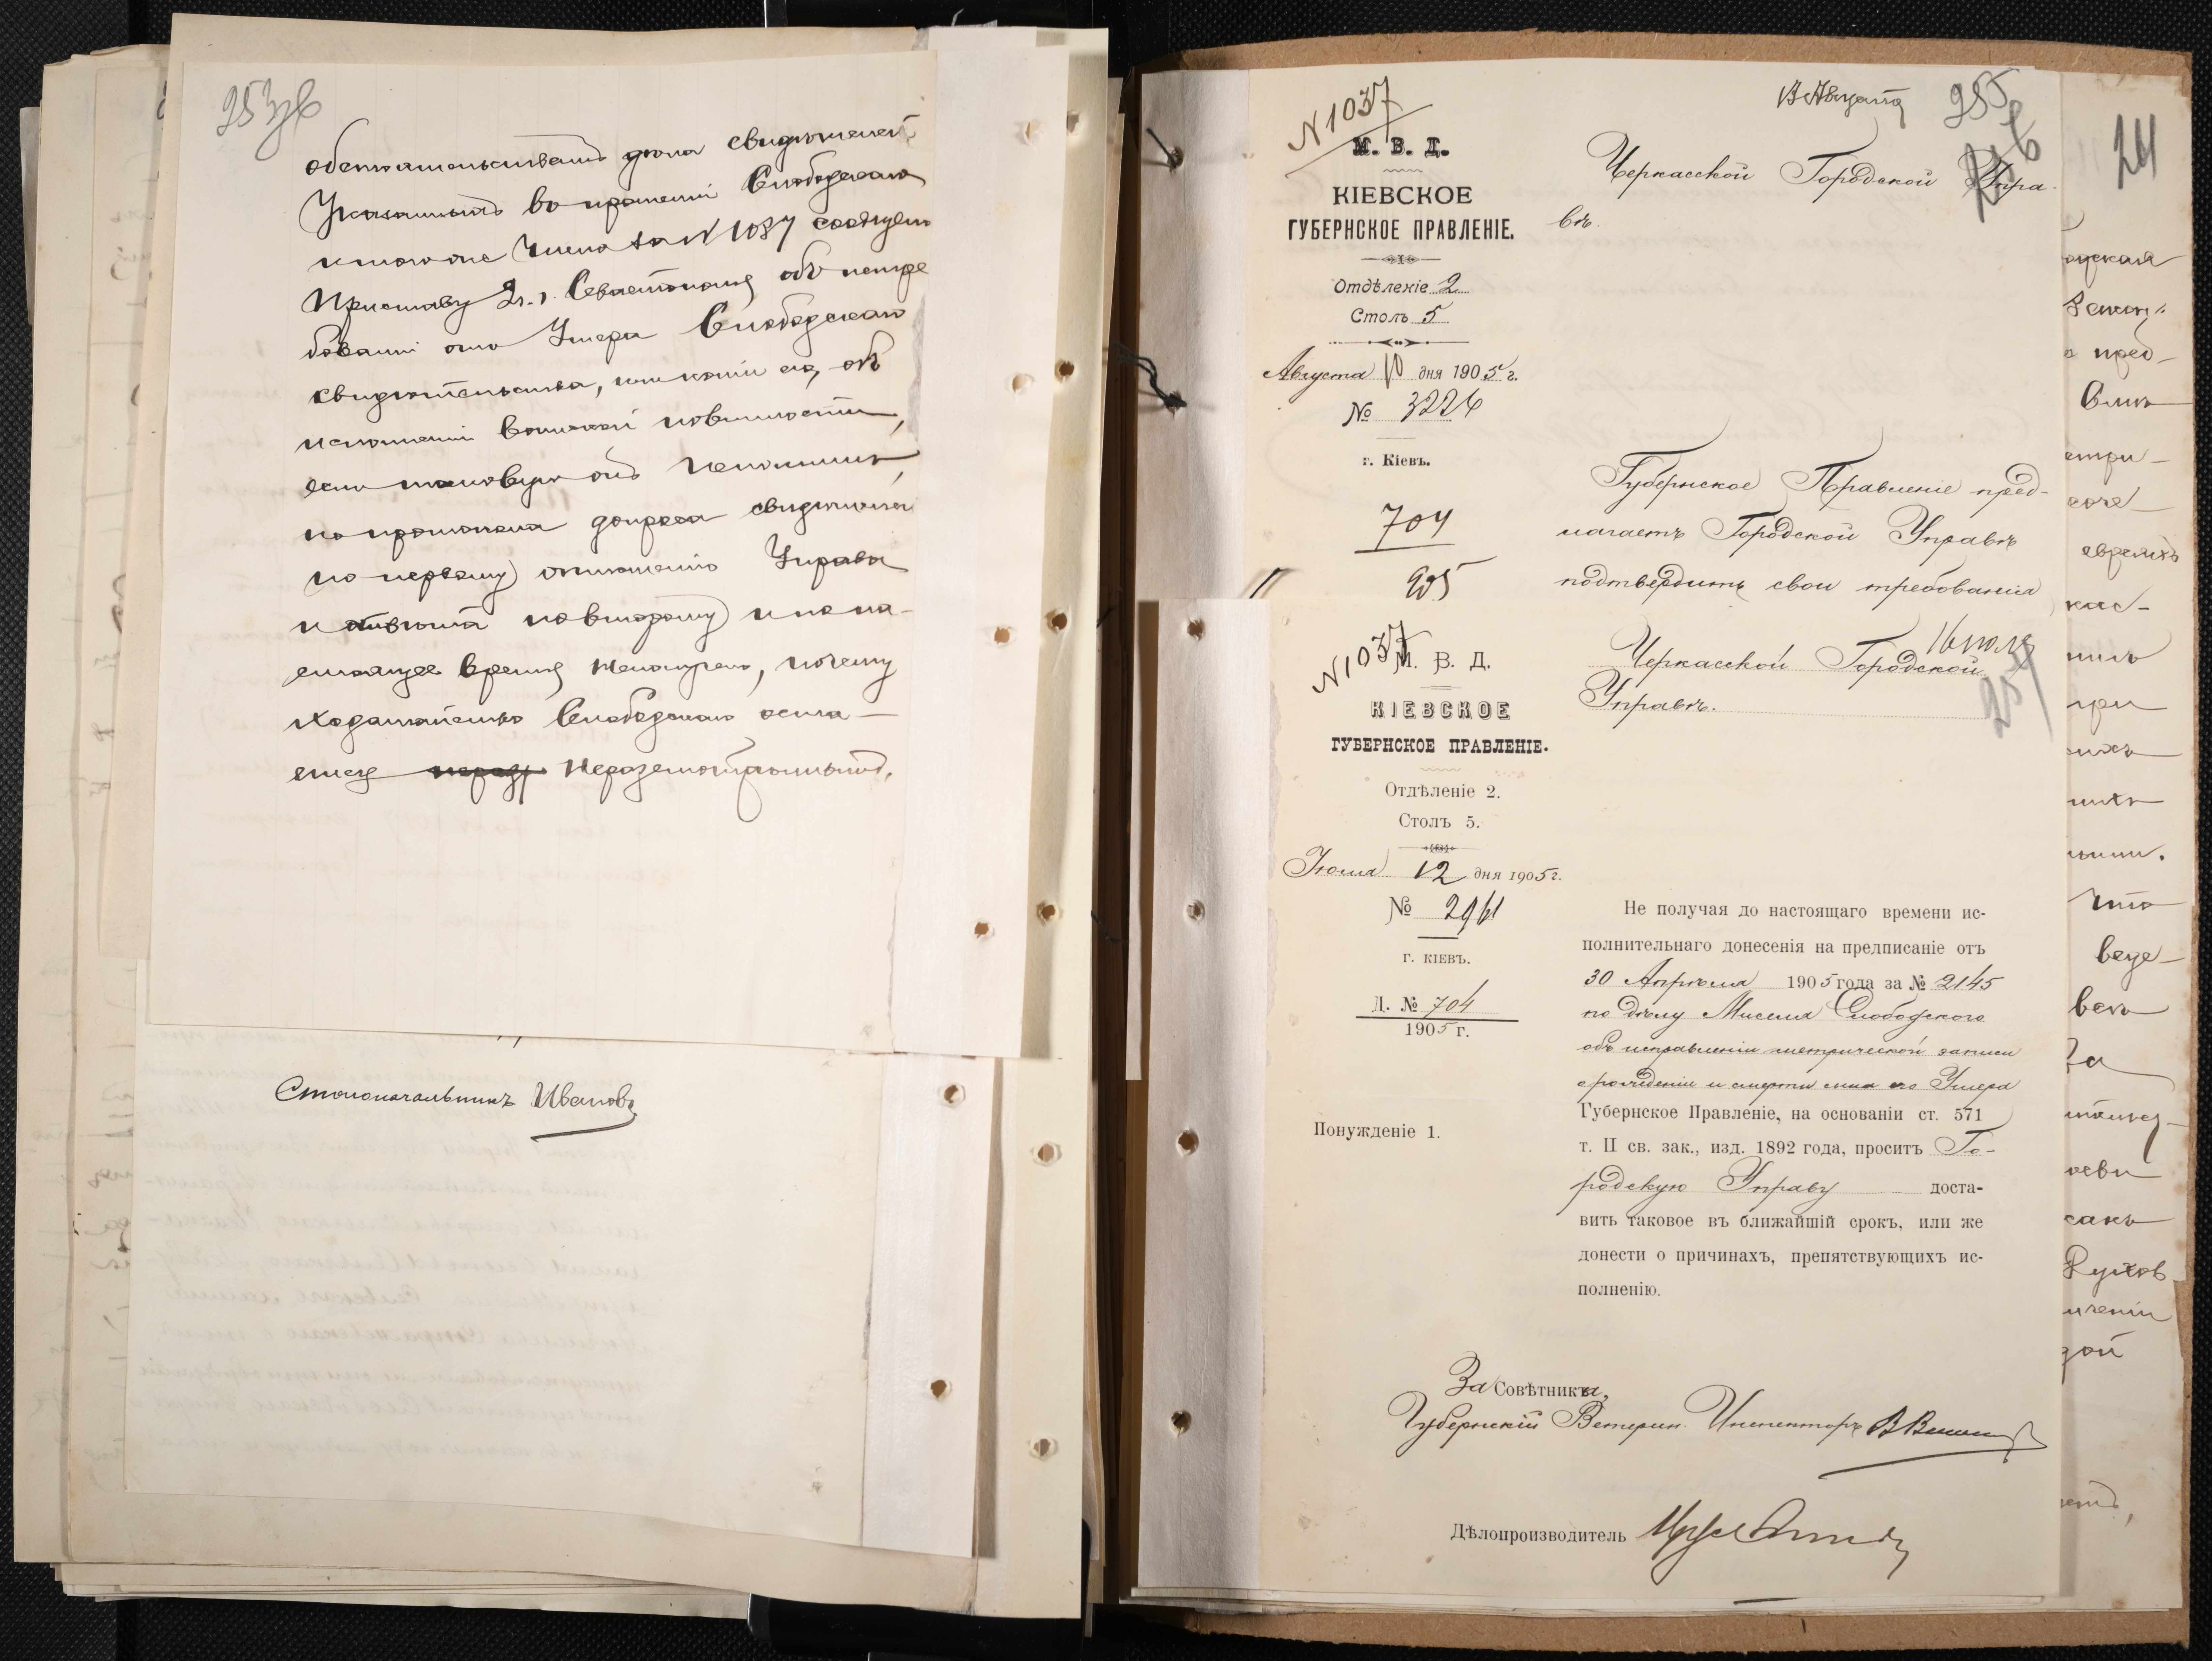 обстоятельствамъ дѣла свидѣтелей,
указанныхъ въ прошеніи Слободскаго
и того же числа за № 1037 сообщено
Приставу 2 ч. г. Севастополя объ истре
бованіи отъ Умера Слободскаго
свидѣтельства, или копіи его, объ
исполненіи воинской повинности,
если таковую онъ исполнилъ,
но протокола допроса свидѣтелей
по первому отношенію Управа
и отвѣта по второму и по на-
стоящее время не получено, почему
ходатайство Слободского оста-
ется неразсмотрѣннымъ.
Столоначальникъ Ивановъ
N 1037
М. В. Д.
КІЕВСКОЕ
ГУБЕРНСКОЕ ПРАВЛЕНІЕ.
Отдѣленіе 2
Столъ 5
Августа 10 дня 1905 г.
№ 3226
г. Кіевъ.
704
905
13 Августа
255
Черкасской Городской Упра-
вѣ.
Губернское Правленіе пред-
лагаетъ Городской Управѣ
подтвердить свои требованія
24
N 1037
М. В. Д.
КІЕВСКОЕ
ГУБЕРНСКОЕ ПРАВЛЕНІЕ.
Отдѣленіе 2.
Столъ 5.
Іюля 12 дня 1905 г.
№ 2961
г. КІЕВЪ.
Д. № 704
1905 г.
Понужденіе 1.
16 іюля
Черкасской Городской
Управѣ.
Не получая до настоящаго времени ис-
полнительнаго донесенія на предписаніе отъ
30 Апрѣля 1905 года за № 2145
по дѣлу Мисела Слободского
объ исправленіи метрической записи
о рожденіи и смерти сына его Умера
Губернское Правленіе, на основаніи ст. 571
т. II св. зак., изд. 1892 года, проситъ Го-
родскую Управу доста-
вить таковое въ ближайшій срокъ, или же
донести о причинахъ, препятствующихъ ис-
полненію.
За Совѣтника,
Губернскій Ветерин. Инспекторъ
Дѣлопроизводитель